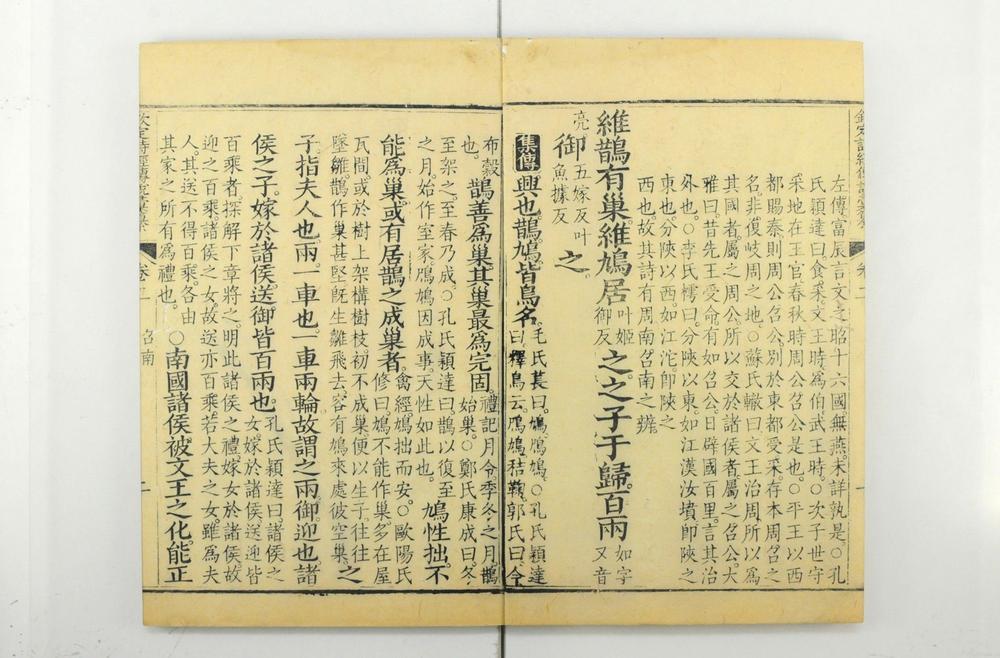 欽定詩經傳說彙纂 卷二 一
左傳富辰言文之昭十六國無燕未詳孰是○孔
氏穎達曰食采文王時為伯武王時○次子世守
采地在王官春秋時周公召公是也○平王以西
都賜秦則周公召公別於東都受采存本周召之
名非復岐周之地○蘇氏轍曰文王治周所以為
其國者屬之周公所以交於諸侯者屬之召公大
雅曰昔先王受命有如召公日辟國百里言其治
外也○李氏樗曰分陝以東如江漢汝墳即陝之
東也分陝以西如江沱即陝之
西也故其詩有周南召南之辨
維鵲有巢維鳩居叶姬御反之之子于歸百兩如字又音
亮御五嫁反叶魚據反之
集傳興也鵲鳩皆鳥名毛氏萇曰鳩鳲鳩○孔氏穎達曰釋鳥云鳲鳩秸鞠郭氏曰今
布穀也鵲善為巢其巢最為完固禮記月令季冬之月鵲始巢○鄭氏康成曰冬
至架之至春乃成○孔氏穎達曰鵲以復至之月始作室家鳲鳩因成事天性如此也鳩性拙不
能為巢或有居鵲之成巢者禽經鳩拙而安○歐陽氏修曰鳩不能作巢多在屋
瓦間或於樹上架構樹枝初不成巢便以生子往往墜雛鵲作巢甚堅既生雛飛去容有鳩來處彼空巢之
子指夫人也兩一車也一車兩輪故謂之兩御迎也諸
侯之子嫁於諸侯送御皆百兩也孔氏穎達曰諸侯之女嫁於諸侯送迎皆
百乘者探解下章將之明此諸侯之禮嫁女於諸侯故迎之百乘諸侯之女故送亦百乘若大夫之女雖為夫
人其送不得百乘各由其家之所有為禮也○南國諸侯被文王之化能正
欽定詩經傳說彙纂 卷二 召南 一